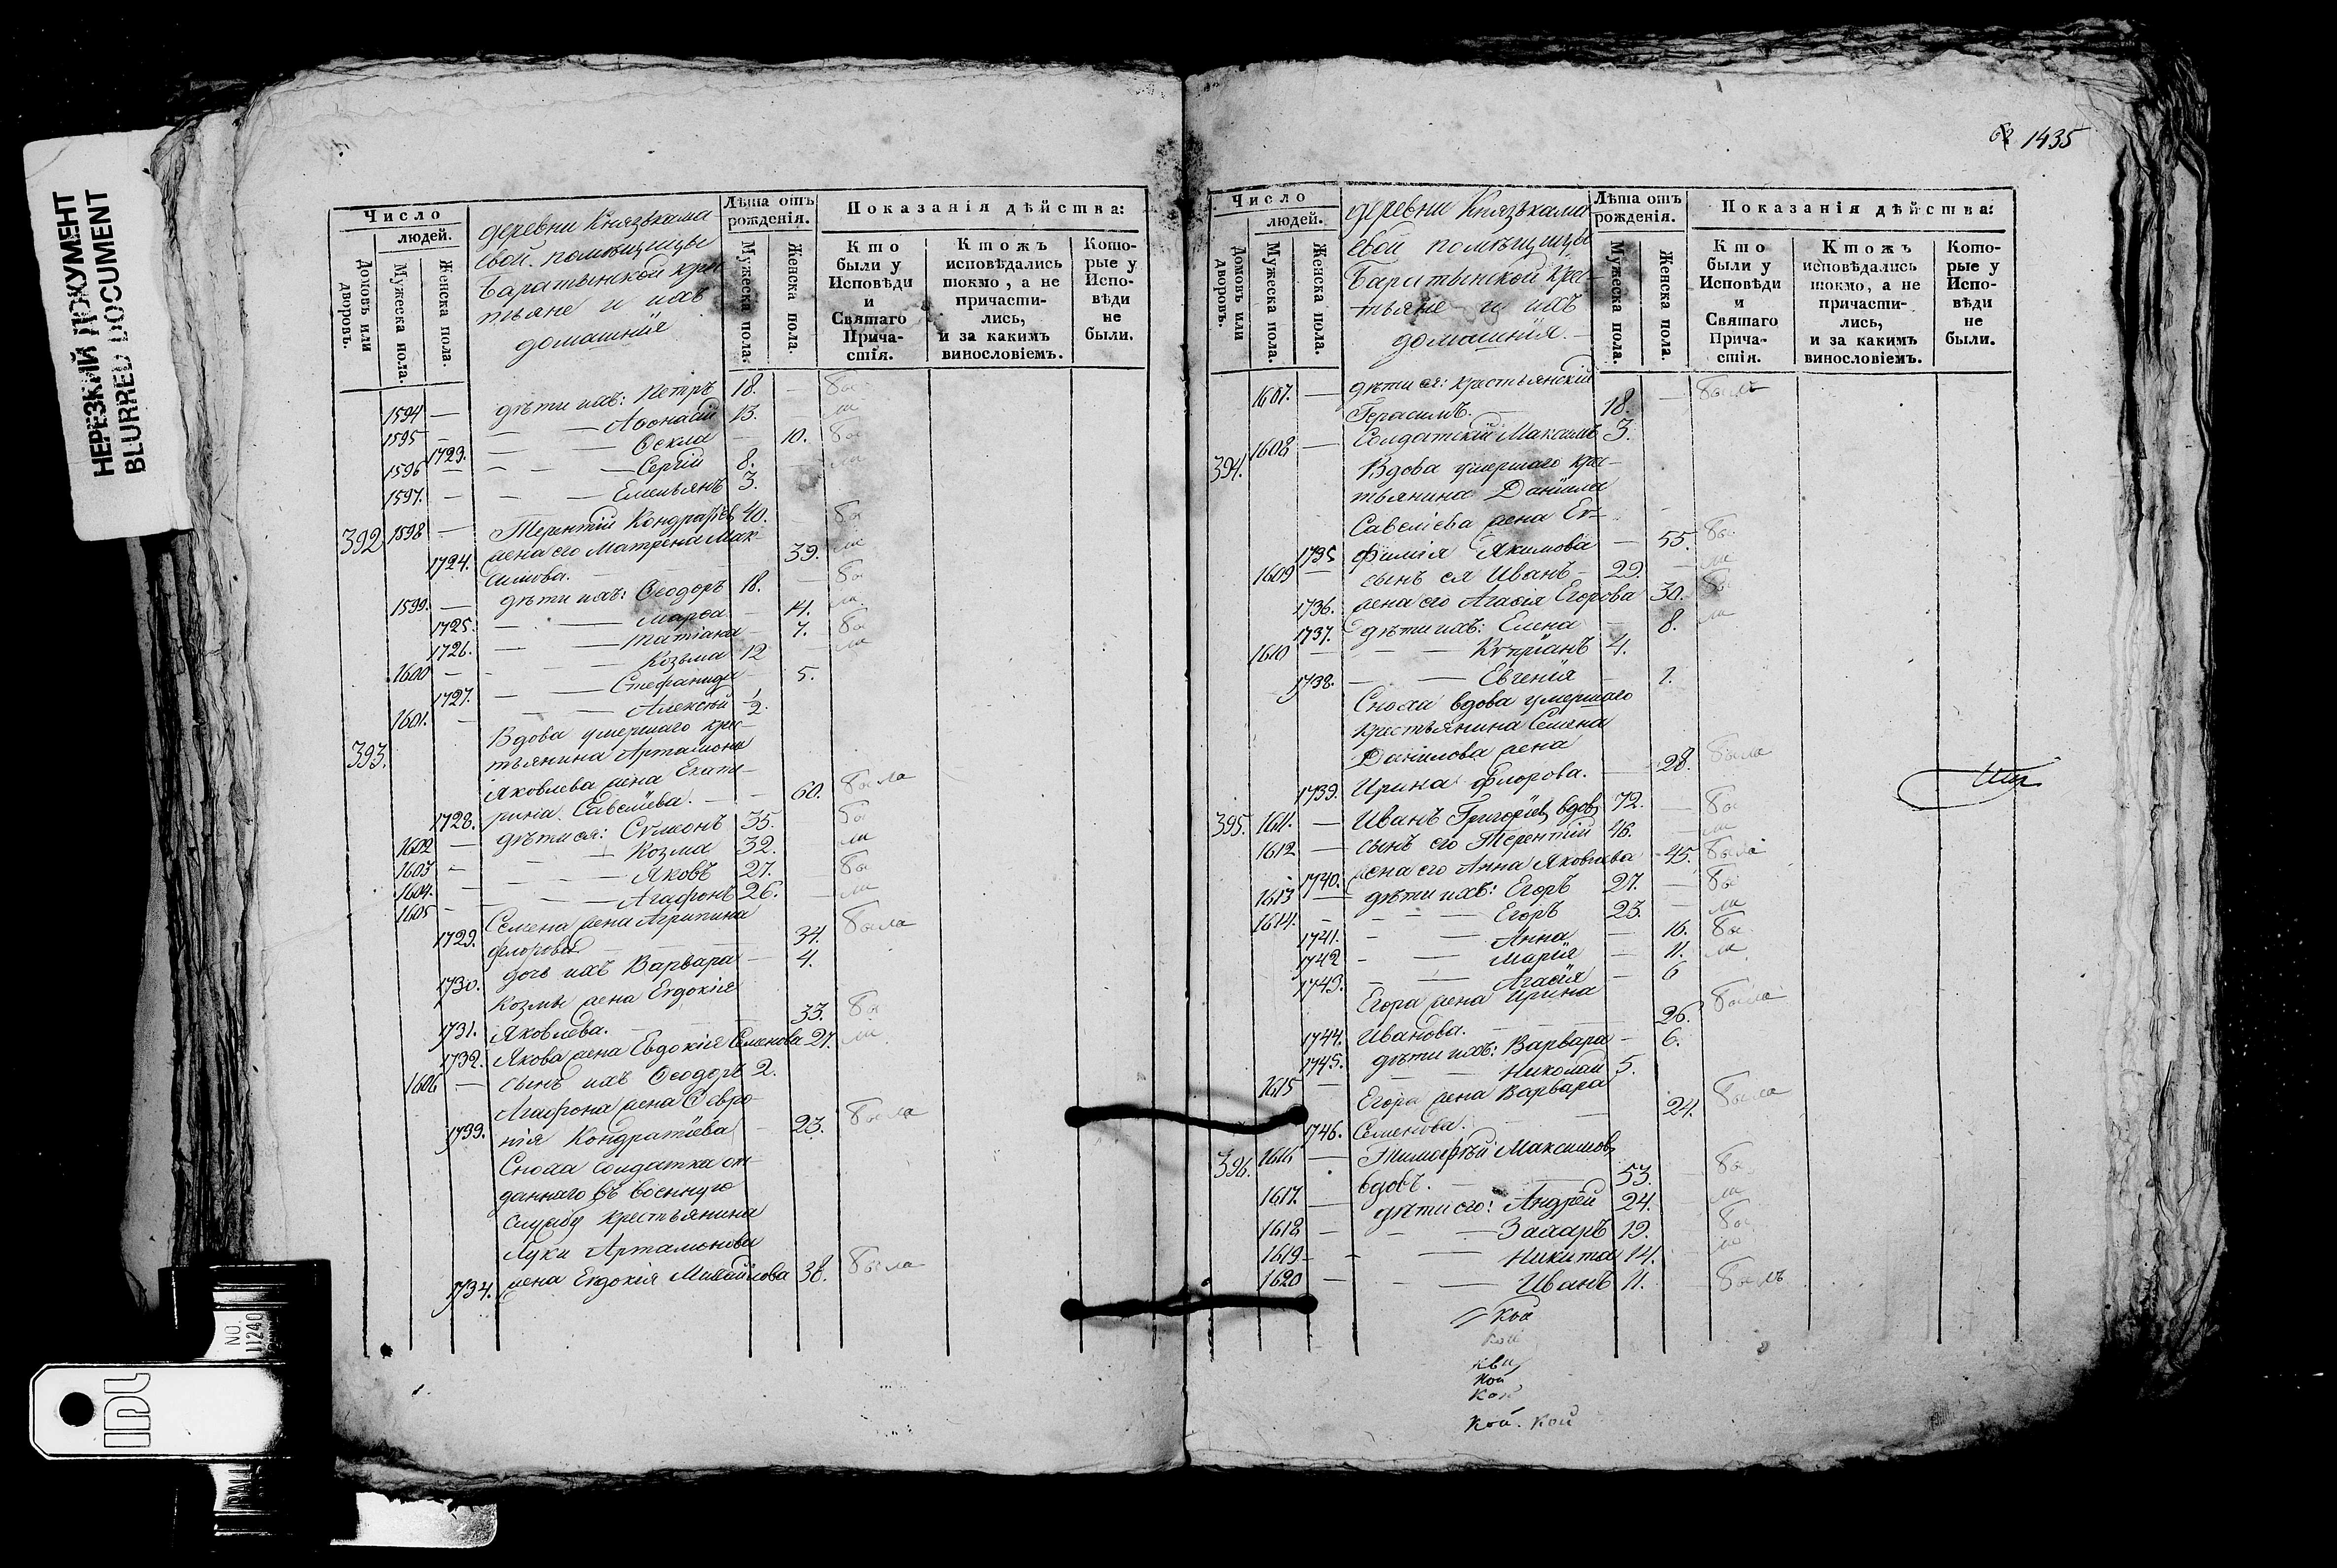 НЕРЕЗКИЙ ДОКУМЕНТ
BLURRED DOCUMENT
Число
людей.
Домовъ или дворовъ.
Мужеска пола.
Женска пола.
деревни Князькама
евой помѣщицы
Баратынской крес
тьяне и ихъ
домашнiя
Лѣта отъ рожденiя.
Мужеска пола.
Женска пола.
Показанiя дѣйства:
Кто были у Исповѣди и Святаго Прича-стiя.
Ктожъ исповѣдались токмо, а не причасти-лись, и за какимъ винословiемъ.
Кото-рые у Испо-вѣди не были.
1594 — дѣти ихъ: Петръ 18. — бы
1595 — — Аѳонасiй 13. ли
1723. — — Ѳекла — 10. бы
1596 — — — Сергiй 8. — ли
1597. — — — Емельянъ 3.
392 1598 — Терентiй Кондратьев 40. бы
1724. жена его Матрена Мак
симова. — 39. ли
1599. — дѣти ихъ: Ѳеодоръ 18. — бы
1725. — — Марѳа — 14. ли
1726. — — Татiана — 7. бы
1600 — — Козьма 12 — ли
1727. — — Стефанида — 5.
1601. — — — Алексѣй 1/2.
393. Вдова умершаго крес-
тьянина Артамона
Яковлева жена Екате-
1728. рина Савелiева. — — 60. была
1602 — дѣти ея: Сѵмеонъ 35. бы
1603 — — Козма 32. ли
1604. — — — Яковъ 27. бы
1605 — — — Агафонъ 26. — ли
Семена жена Агрипина
1729. Флорова — 34. была
1730. дочь ихъ Варвара — 4.
Козмы жена Евдокiя
1731. Яковлева. — 33. бы
1732. Якова жена Евдокiя Семенова 27. ли
1606 — сынъ ихъ Ѳеодоръ 2.
Агафона жена Ѳевро-
1733. нiя Кондратiева — 23. была
Сноха солдатка от-
даннаго въ военную
службу крестьянина
Луки Артамонова
1734. жена Евдокiя Михайлова 38. была
NO. 11240
IDC
1435
Число
людей.
Домовъ или дворовъ.
Мужеска пола.
Женска пола.
деревни Князькама
евой помѣщицы
Баратынской крес-
тьяне и ихъ
домашнiя. —
Лѣта отъ рожденiя.
Мужеска пола.
Женска пола.
Показанiя дѣйства:
Кто были у Исповѣди и Святаго Прича-стiя.
Ктожъ исповѣдались токмо, а не причасти-лись, и за какимъ винословiемъ.
Кото-рые у Испо-вѣди не были.
1607. — дѣти ея: крестьянскiй — былъ
Герасимъ. 18.
1608 — Солдатскiй Максимъ 3.
394. Вдова умершаго крес-
тьянина Данiила
Савелiева жена Ев-
1735 фимiя Якимова — 55. бы
1609 — сынъ ея Иванъ — 29. — ли
1736. жена его Агаѳiя Егорова 30. бы
1737. дѣти ихъ: Елена — 8. ли
1610 — — — Кѵпрiанъ 4.
1738. — — Евгенiя — 1.
Сноха вдова умершаго
крестьянина Семена
Данилова жена
1739. Ирина Флорова. — 28. была
395. 1611. — Иванъ Григорiев вдов 72. — бы
1612 — сынъ его Терентiй 46. — ли
1740. жена его Анна Яковлева 45. была
1613 — дѣти ихъ: Егоръ 27. — бы
1614. — — — Егоръ 23. — ли
1741. — — Анна — 16. бы
1742 — — Марiя — 11. ли
1743. — — Агаѳiя — 6
Егора жена Ирина
1744. Иванова. — 26. была
1745. дѣти ихъ: Варвара — 6.
1615 — — — Николай 5.
Егора жена Варвара
1746. Семенова. — 24. была
396. 1616 — Тимофѣй Максимов
вдовъ. — 53. — бы
1617. — дѣти его: Андрей 24. ли
1618 — — — Захаръ 19. бы
1619 — — — Никита 14. ли
1620 — — — Иванъ 11. былъ
кой
кой
кой
кой
кой. кой